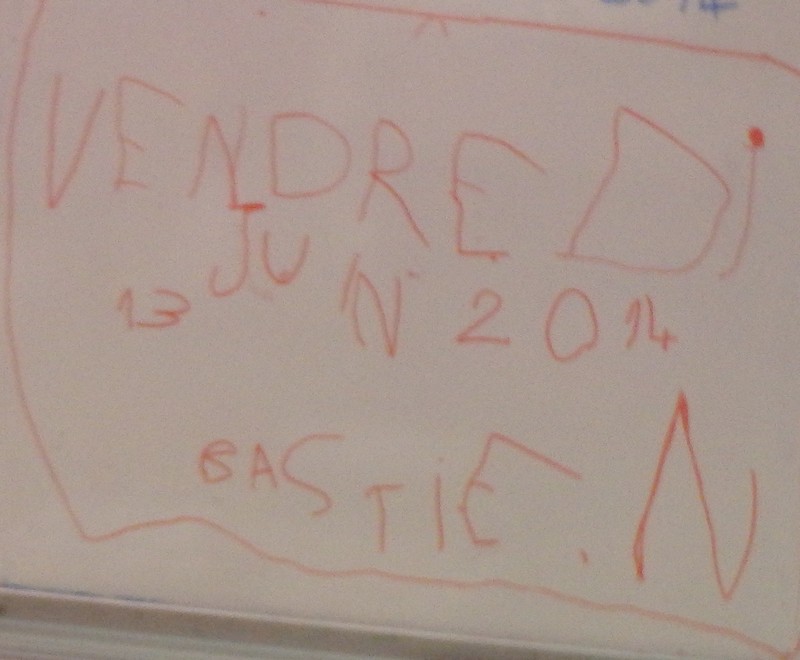 VENDREDi
13 JUIN 2014
BASTiE.N